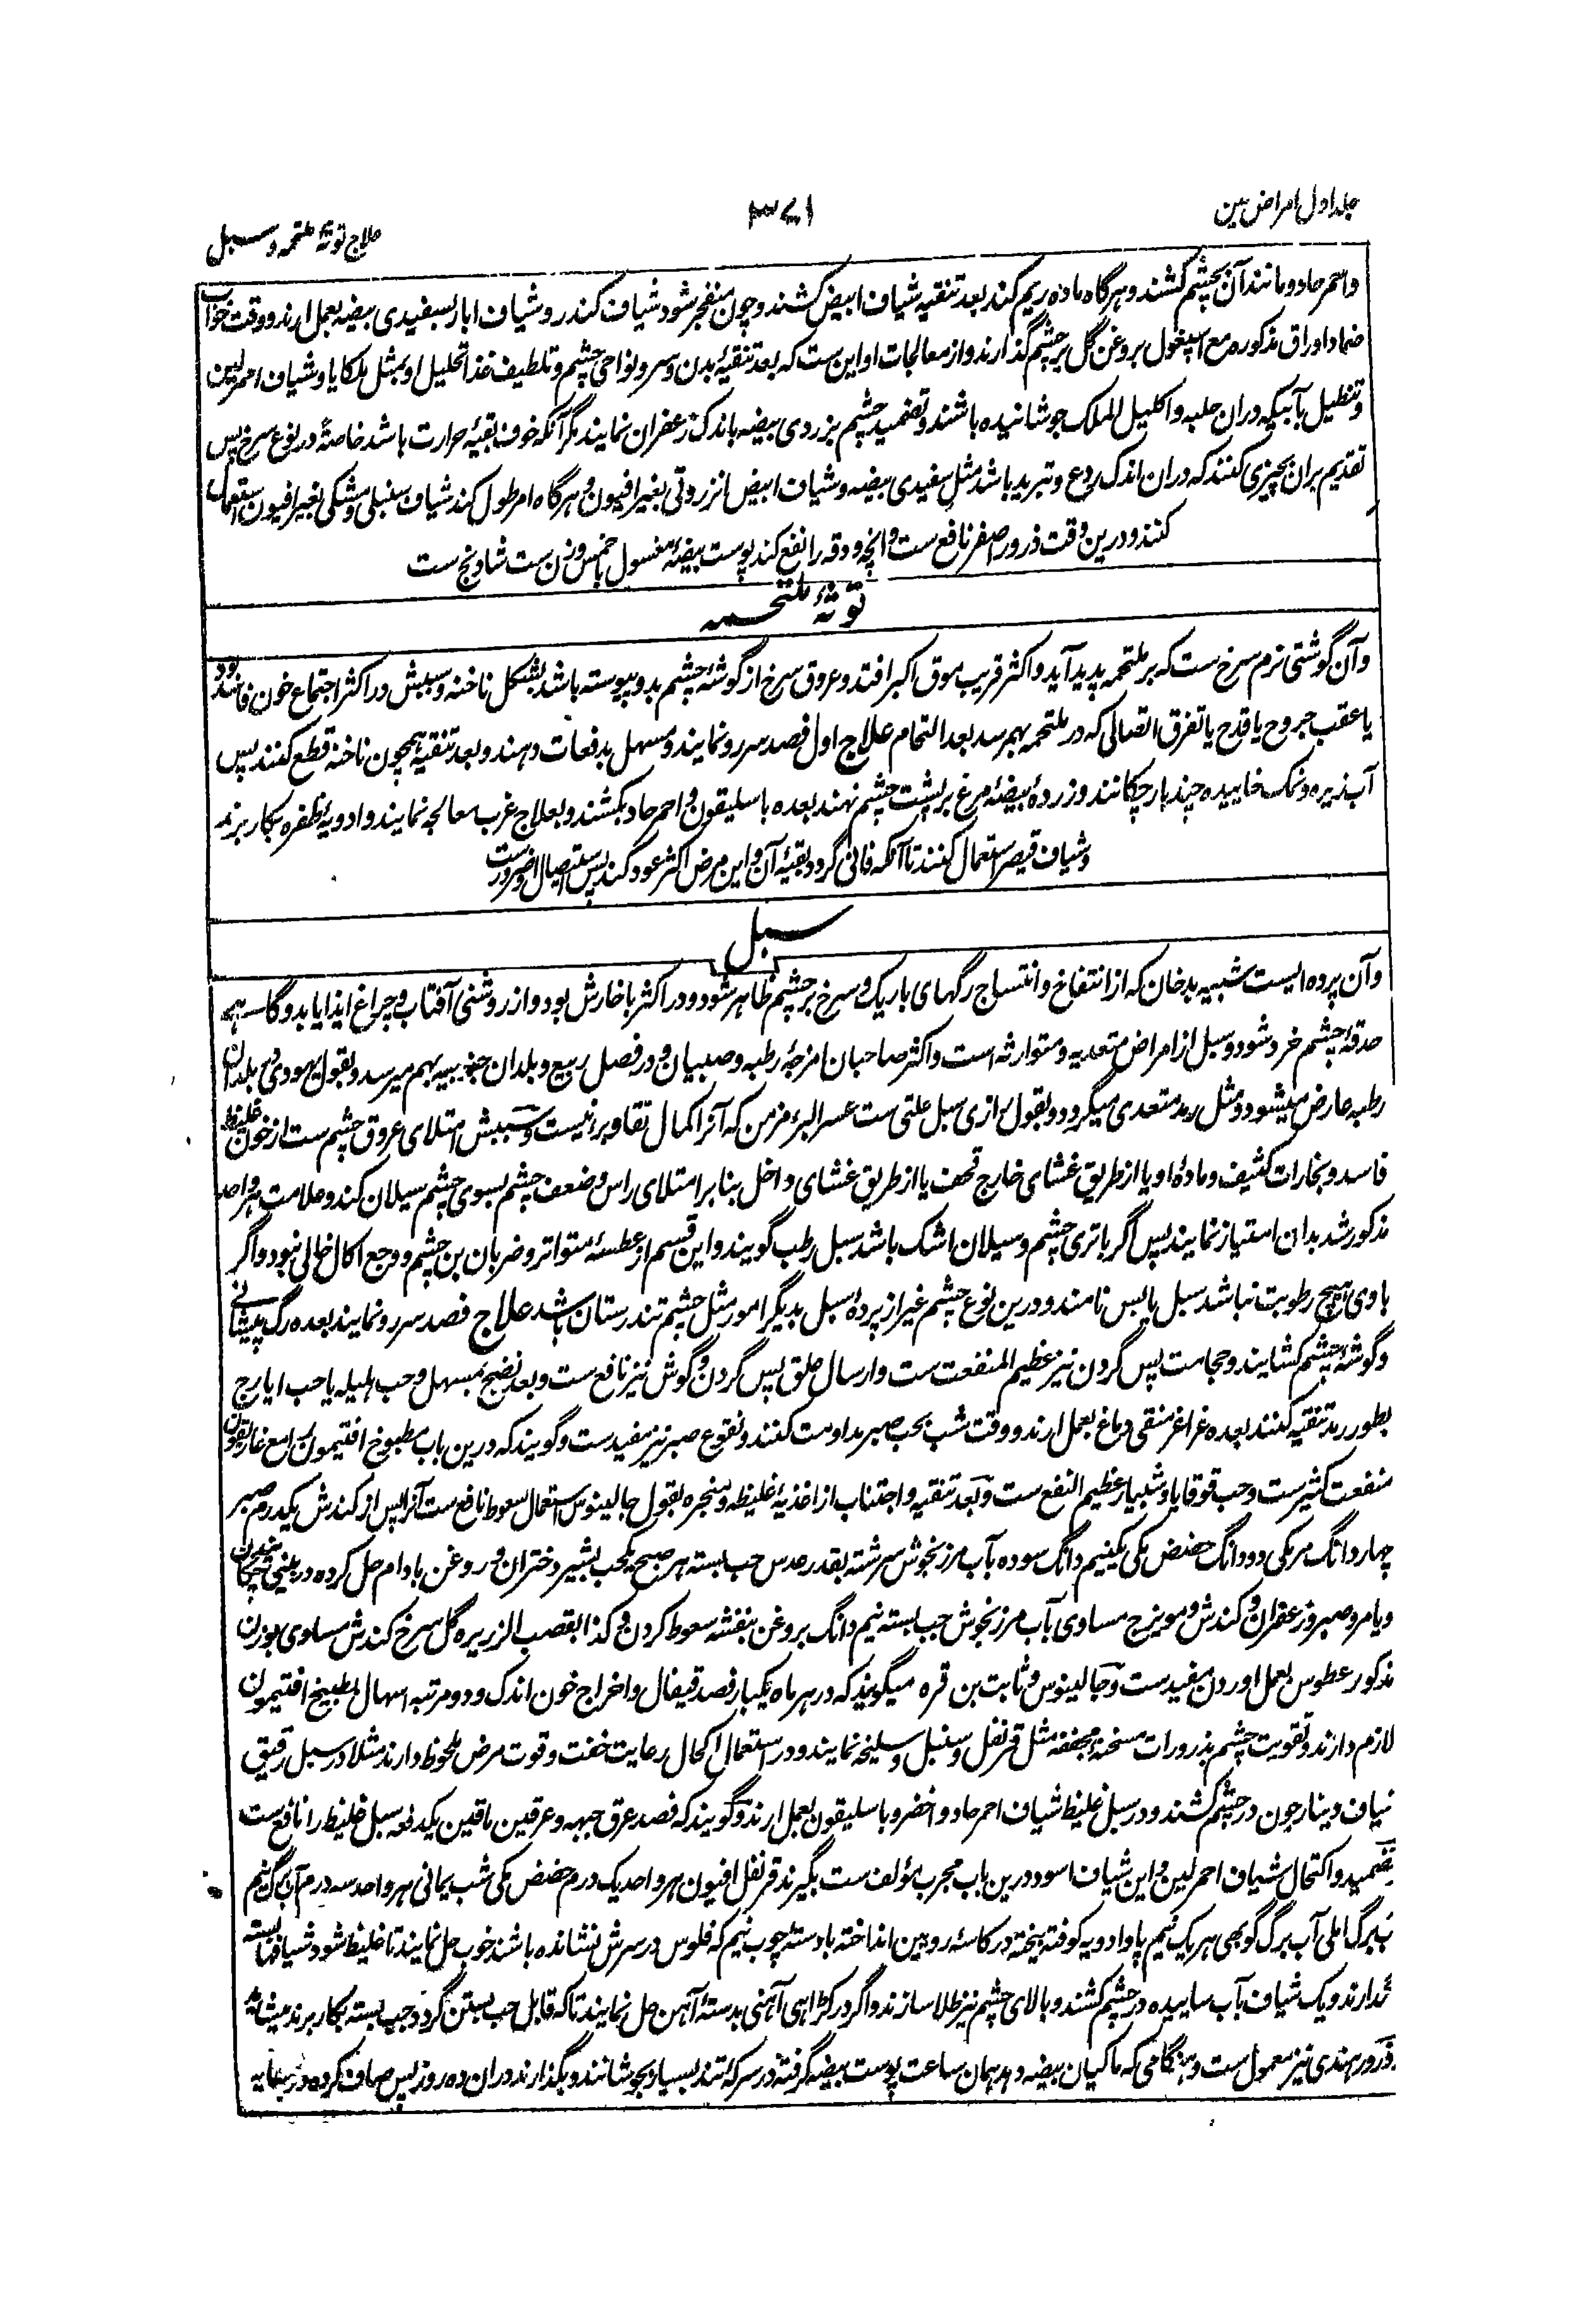 جلد اول امراض عین
۳۷۱
علاج توثهٔ ملتحمه و سبل
واحمر حاد و مانند آن بچشم کشند و هرگاه ماده ریم کند بعد تنقیه شیاف ابیض کشند و چون منفجر شود شیاف کندر و شیاف ابار بسفیدی بیضه بعمل ارند و وقت خواب
ضماد اوراق مذکوره مع اسپغول بروغن گل بر چشم گذارند و از معالجات او این ست که بعد تنقیهٔ بدن و سر و نواحی چشم و تلطیف غذا تحلیل او بمثل ملکایا و شیاف احمر لین
و تنطیل بآبیکه دران حلبه و اکلیل الملک جوشانیده باشند و تضمید چشم بزردی بیضه باندک زعفران نمایند مگر آنکه خوف بقیهٔ حرارت باشد خاصةً در نوع سرخ پس
تقدیم بران بچیزی کنند که دران اندک ردع و تبرید باشد مثل سفیدی بیضه و شیاف ابیض انزروتی بغیر افیون و هرگاه امر طول کند شیاف سنبلی و مشکی بغیر افیون استعمال
کنند و درین وقت ذرور اصفر نافع ست و انچه ودقه را نفع کند پوست بیضهٔ مغسول باخمس وزن ست شادنج ست
توثهٔ ملتحمه
وآن گوشتی نرم سرخ ست که بر ملتحمه پدید آید و اکثر قریب موق اکبر افتد و عروق سرخ از گوشهٔ چشم بدو پیوسته باشد بشکل ناخنه و سببش در اکثر اجتماع خون فاسد بود
یا عقب جروح یا قدح یا تفرق اتصالی که در ملتحمه بهم رسد بعد التحام علاج اول فصد سررو نمایند و مسهل بدفعات دهند و بعد تنقیه همچون ناخنه قطع کنند پس
آب زیره و نمک خاییده چند بار چکانند و زردهٔ بیضهٔ مرغ بر پشت چشم نهند بعده باسلیقون و احمر حاد بکشند و بعلاج غرب معالجه نمایند و ادویهٔ ظفره بکار برند
و شیاف قیصر استعمال کنند تا آنکه فانی گردد بقیهٔ آن و این مرض اکثر عود کند پس استیصال او ضرورست
سبل
وآن پرده ایست شبیه بدخان که از انتفاخ و انتساج رگهای باریک و سرخ بر چشم ظاهر شود و در اکثر با خارش بود و از روشنی آفتاب و چراغ ایذا یابد و گاهی همه
حدقهٔ چشم خرد شود و سبل از امراض متعدیه و متوارثه است و اکثر صاحبان امزجهٔ رطبه و صبیان و در فصل ربیع و بلدان جنوبیه بهم میرسد و بقول یهودی بلدان
رطبه عارض میشود و مثل رمد متعدی میگردد و بقول رازی سبل علتی ست عسر البرء مزمن که آنرا کمال نقا و برء نیست و سببش امتلای عروق چشم ست از خون غلیظ
فاسد و بخارات کثیف و مادهٔ او یا از طریق غشای خارج قحف یا از طریق غشای داخل بنا بر امتلای راس و ضعف چشم بسوی چشم سیلان کند و علامت هر واحد
مذکور شد بدان امتیاز نمایند پس اگر باتری چشم و سیلان اشک باشد سبل رطب گویند و این قسم از عطسهٔ متواتر و ضربان بن چشم و وجع اکال خالی نبود و اگر
باوی هیچ رطوبت نباشد سبل یابس نامند و درین نوع چشم غیر از پردهٔ سبل بدیگر امور مثل چشم تندرستان باشد علاج فصد سررو نمایند بعده رگ پیشانی
و گوشهٔ چشم کشایند و حجامت پس گردن نیز عظیم المنفعت ست و ارسال علق پس گردن و گوش نیز نافع ست و بعد نضج بمسهل و حب هلیله یا حب ایارج
بطور رمد تنقیه کنند بعده غراغر منقی دماغ بعمل ارند و وقت شب بحب صبر مداومت کنند و نقوع صبر نیز مفیدست و گویند که درین باب مطبوخ افتیمون مع غاریقون
منفعت کثیرست و حب قوقایا و شبیار عظیم النفع ست و بعد تنقیه و اجتناب از اغذیهٔ غلیظه و مبخره بقول جالینوس استعمال سعوط نافع ست آنرا پس از کندش یکدرم صبر
چهار دانگ مر مکی دو دانگ حضض مکی یکنیم دانگ سوده بآب مرزنجوش سرشته بقدر عدس حب بسته هر صبح یک حب بشیر دختران و روغن بادام حل کرده در بینی چکانند
و یا مر و صبر و زعفران و کندش و مویزج مساوی بآب مرزنجوش حب بسته نیم دانگ بروغن بنفشه سعوط کردن و کذا بقصب الزریره گل سرخ کندش مساوی بوزن
مذکور عطوس بعمل اوردن مفیدست و جالینوس و ثابت بن قره میگویند که در هر ماه یکبار فصد قیفال و اخراج خون اندک و دو مرتبه اسهال بطبیخ افتیمون
لازم دارند و تقویت چشم بذرورات مسخنهٔ مجففه مثل قرنفل و سنبل و سلیخه نمایند و در استعمال اکحال رعایت خفت و قوت مرض ملحوظ دارند مثلا در سبل رقیق
شیاف دینارجون در چشم کشند و در سبل غلیظ شیاف احمر حاد و اخضر و باسلیقون بعمل ارند و گویند که فصد عرق جبهه و عرقین ماقین یکدفعه سبل غلیظ را نافع ست
تضمید و اکتحال شیاف احمر لین و این شیاف اسود درین باب مجرب مؤلف ست بگیرند قرنفل افیون هر واحد یک درم حضض مکی شب یمانی هر واحد سه درم آب برگ نیم
برگ املی آب برگ گوبھی هر یک نیم پاو ادویه کوفته بیخته در کاسهٔ رویین انداخته بادستهٔ چوب نیم که فلوس در سرش نشانده باشند خوب حل نمایند تا غلیظ شود شیافها بسته
بدارند و یک شیاف بآب ساییده در چشم کشند و بالای چشم نیز طلا سازند و اگر در کڑاهی آهنی بدستهٔ آهن حل نمایند تا که قابل حب بستن گردد حب بسته بکار برند
ذرور هندی نیز معمول ست و هنگامی که ماکیان بیضه دهد همان ساعت پوست بیضه گرفته در سرکهٔ تند بسیار بجوشانند و بگذارند دران ده روز پس صاف کرده در سایه